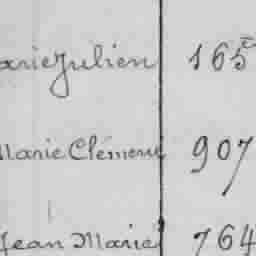 Marie Julien 165
Marie Clément 907
Jean Marie 764